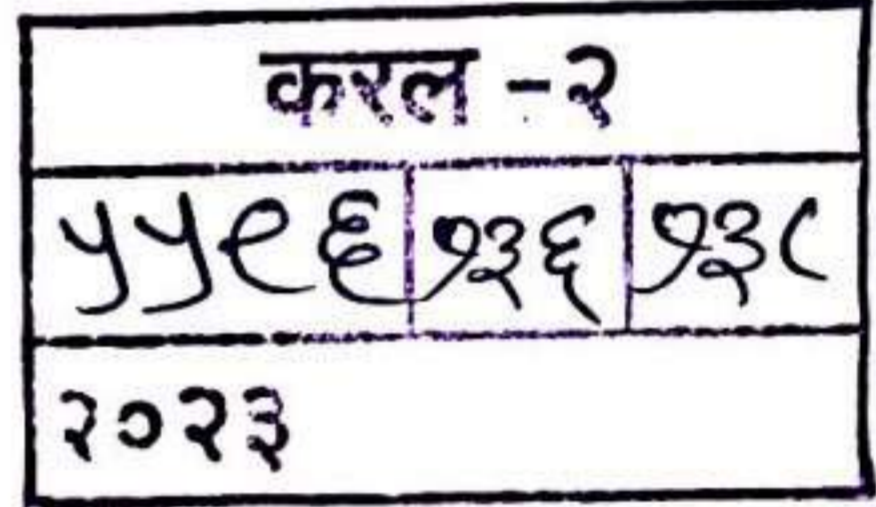 करल -२
५५९६ १३६ १३८
२०२३